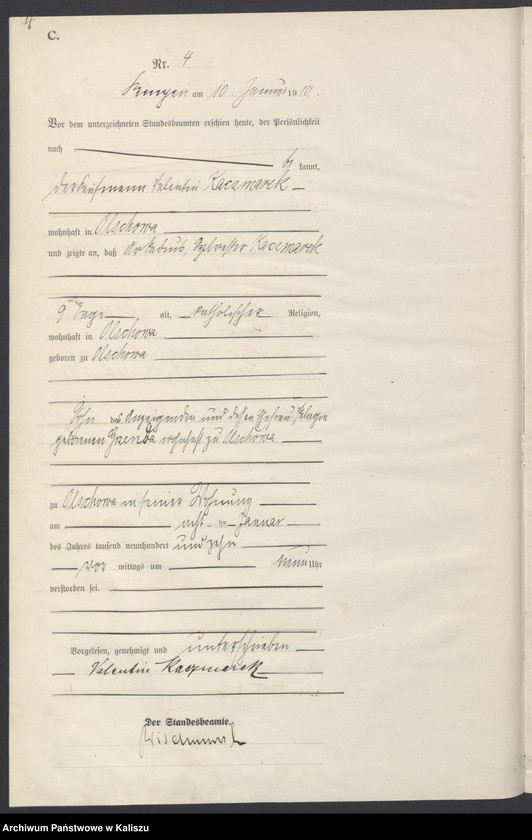 C.
Nr. 4
Kempen am 10. Januar 1910.
Vor dem unterzeichneten Standesbeamten erschien heute, der Persönlichkeit
nach be kannt,
der Kaufmann Valentin Kaczmarek
wohnhaft in Olschowa
und zeigte an, daß Arkadius, Sylvester Kaczmarek
9 Tage alt, katholischer Religion,
wohnhaft in Olschowa
geboren zu Olschowa
Sohn des Anzeigenden und dessen Ehefrau Pelagia
geborenen Grenda wohnhaft zu Olschowa
zu Olschowa in seiner Wohnung
am acht ten Januar
des Jahres tausend neunhundert und zehn
vor mittags um neun Uhr
verstorben sei.
Vorgelesen, genehmigt und unterschrieben
Valentin Kaczmarek
Der Standesbeamte.
Archiwum Państwowe w Kaliszu